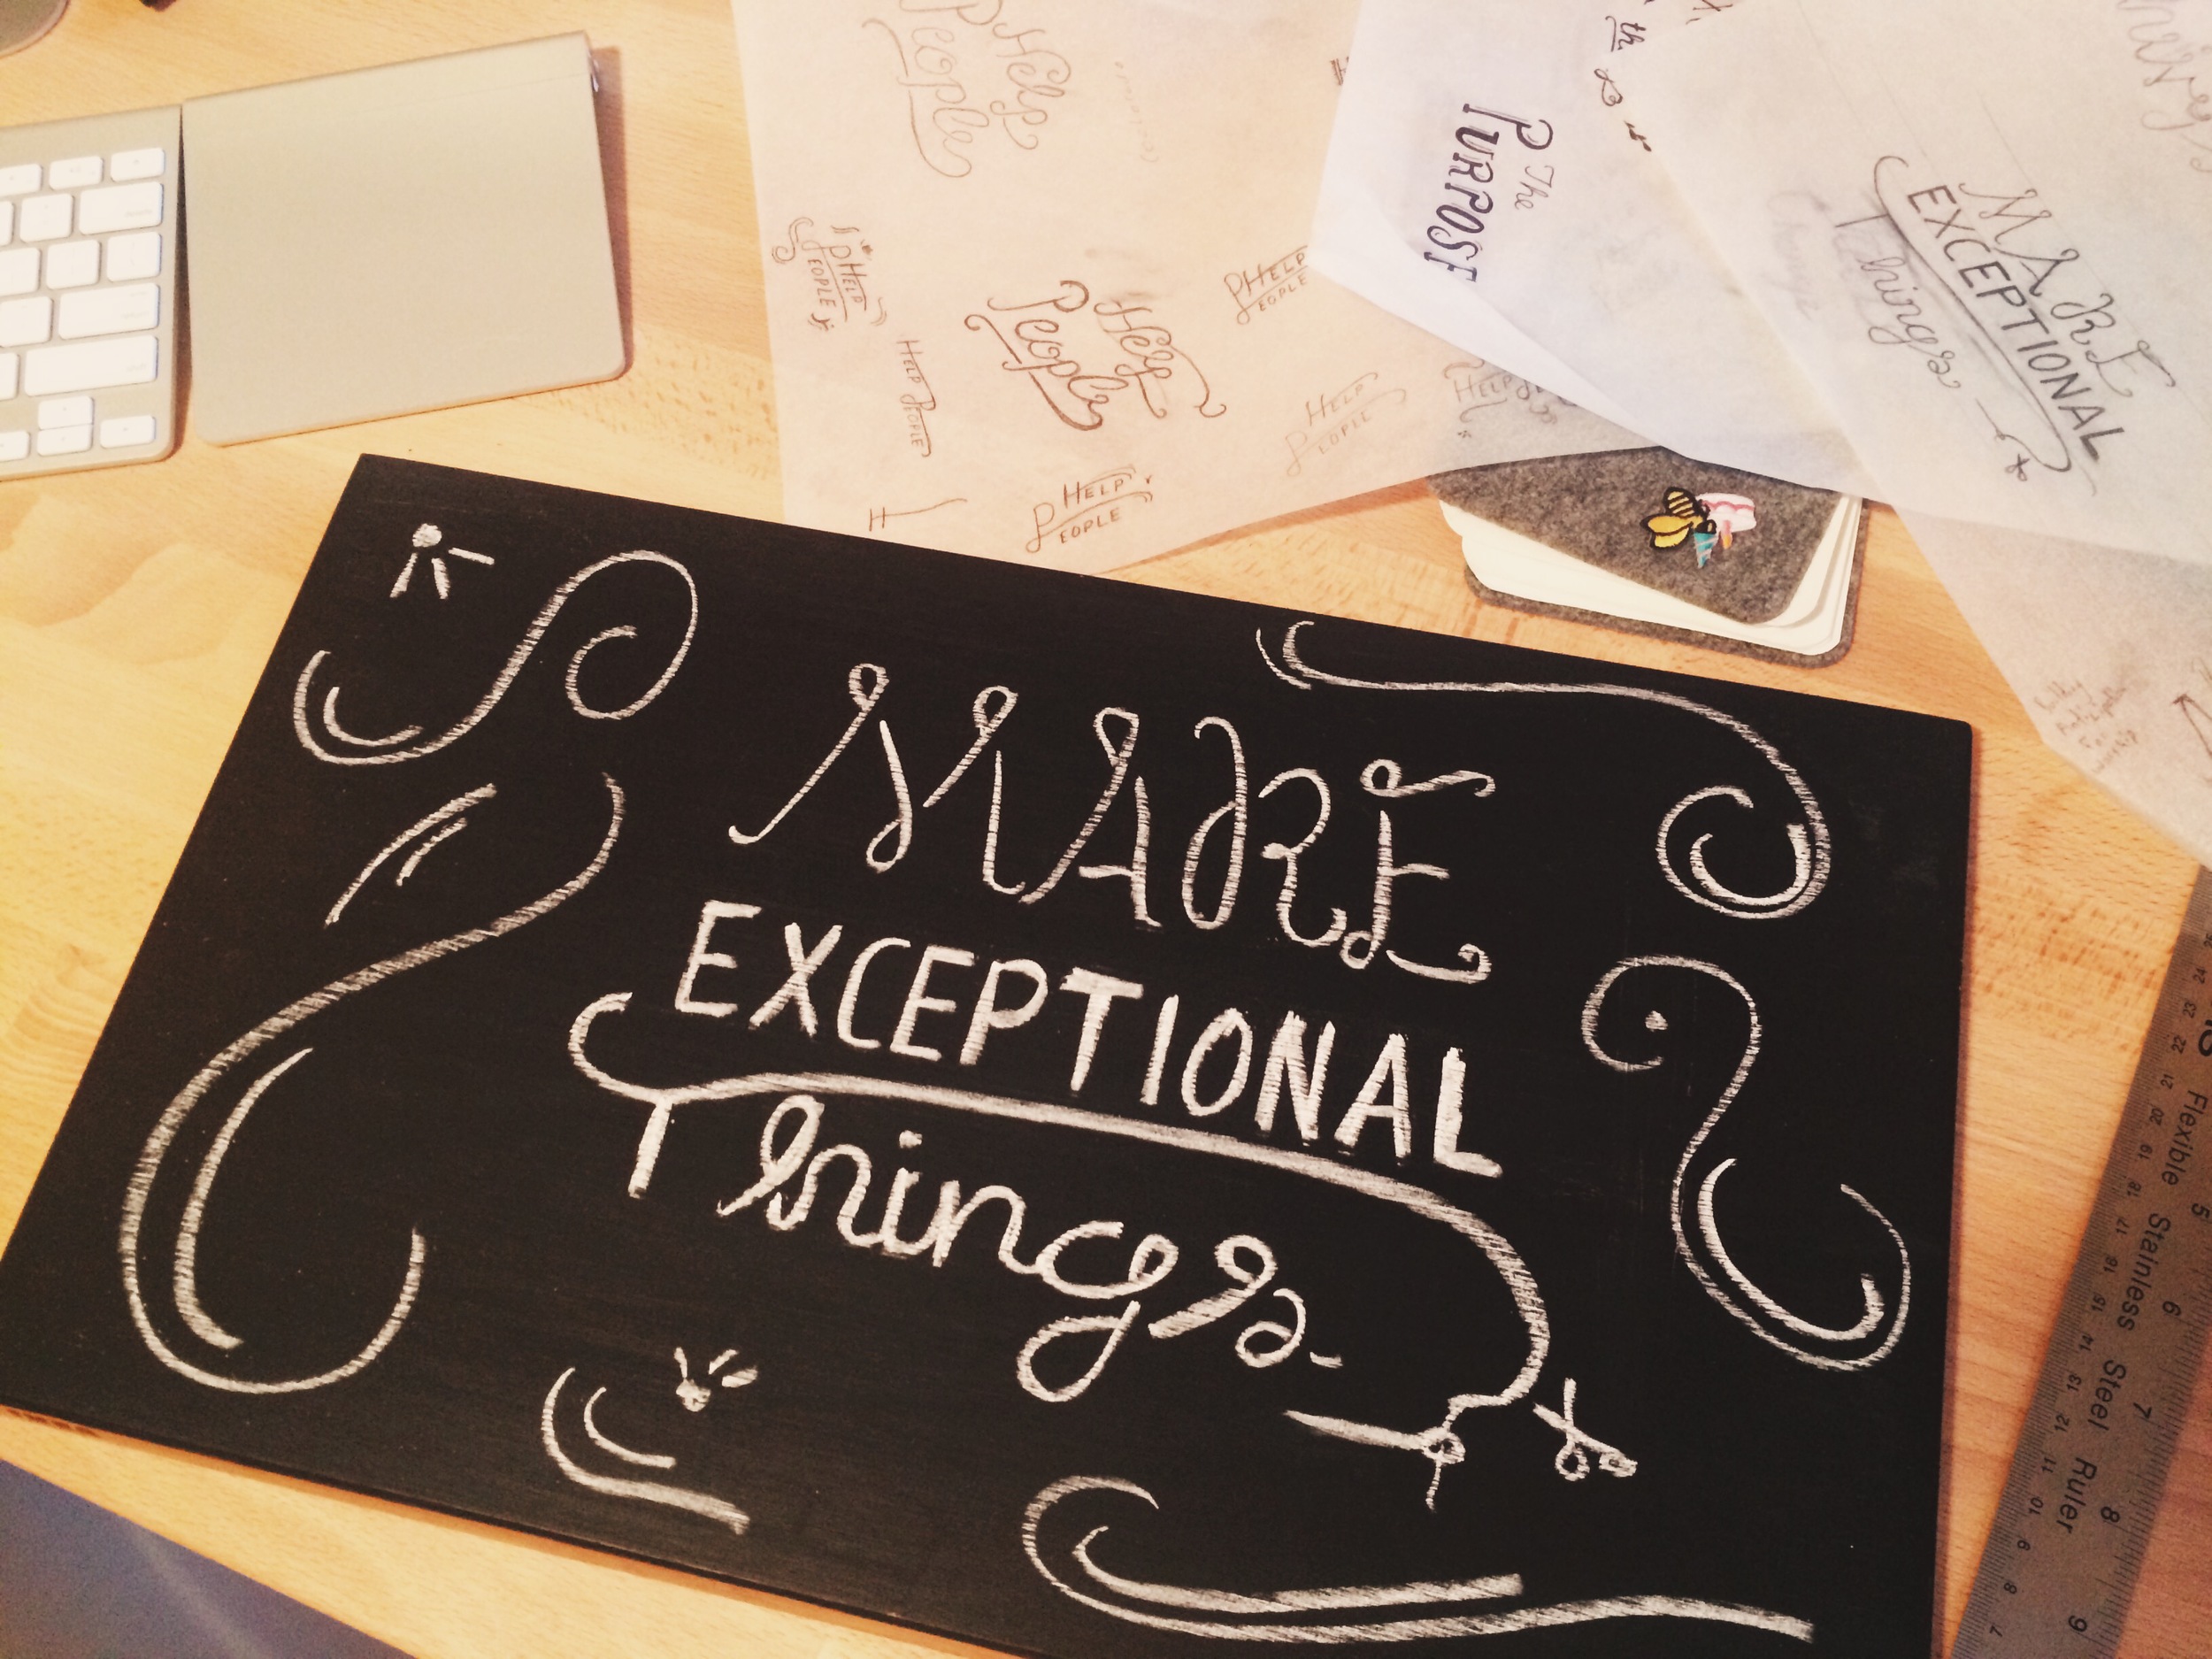 MAKE
EXCEPTIONAL
Things
Help
People
Help
People
HELP
PEOPLE
HELP
PEOPLE
HELP PEOPLE
HELP
PEOPLE
HELP
PEOPLE
H
HELP
The
PURPOSE
th
MAKE
EXCEPTIONAL
Things
Flexible Stainless Steel Ruler
24
23
22
21
20
19
18
17
16
15
14
13
12
11
10
9
8
7
5
6
7
8
9